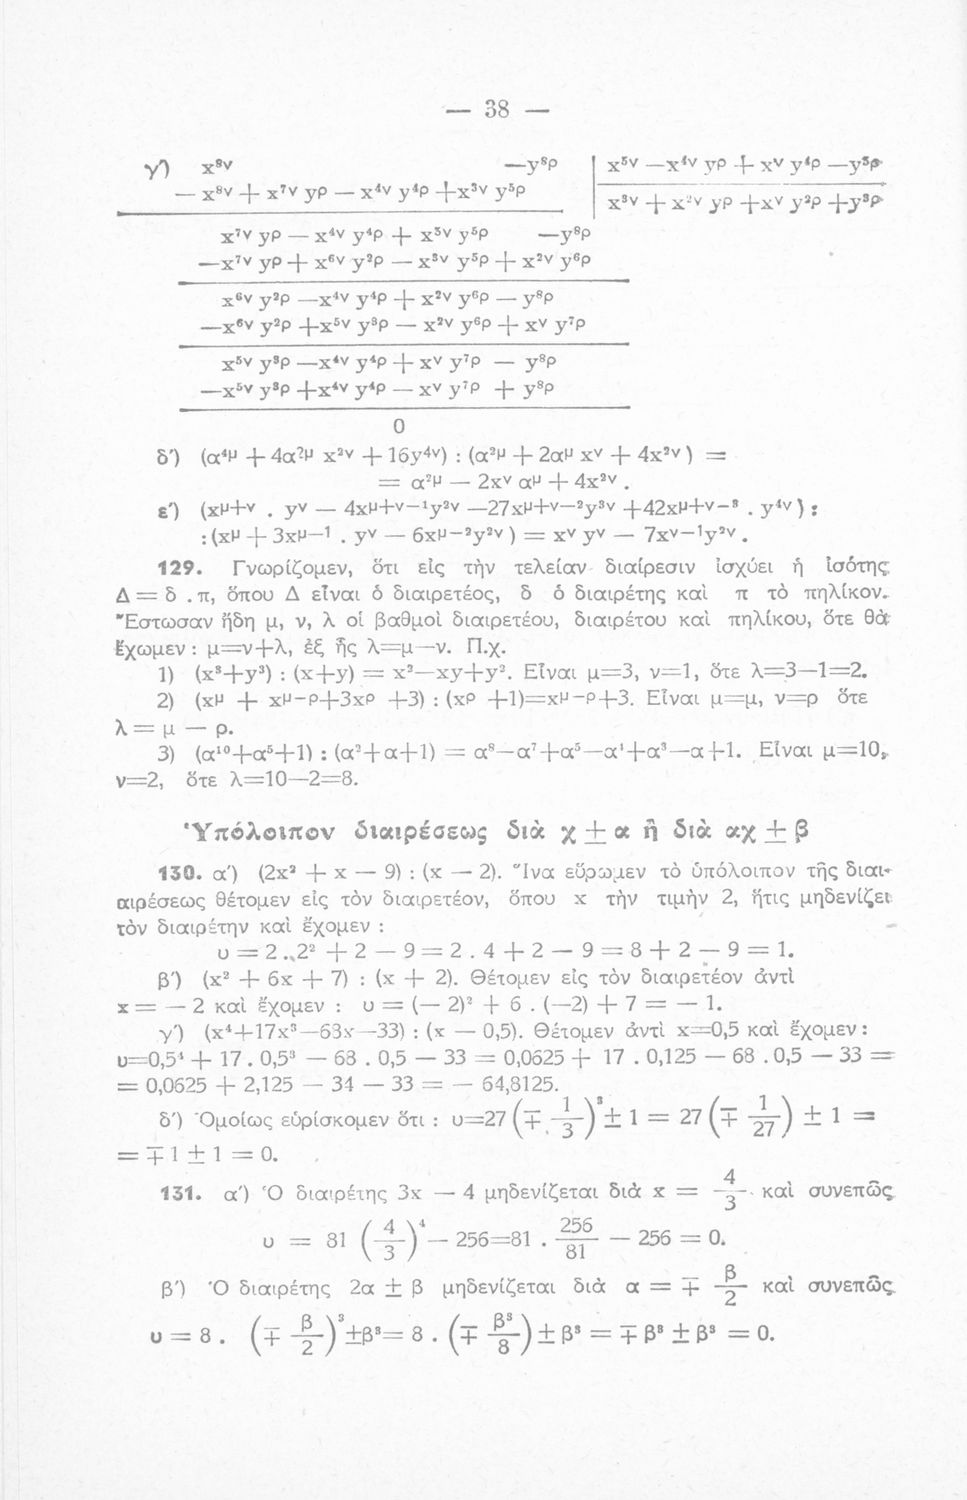 — 38 —
γ') x⁸ᵛ —y⁸ᵖ | x⁵ᵛ —x⁴ᵛ yᵖ + xᵛ y⁴ᵖ —y⁵ᵖ
— x⁸ᵛ + x⁷ᵛ yᵖ — x⁴ᵛ y⁴ᵖ +x³ᵛ y⁵ᵖ | x³ᵛ + x²ᵛ yᵖ +xᵛ y²ᵖ +y³ᵖ
x⁷ᵛ yᵖ — x⁴ᵛ y⁴ᵖ + x³ᵛ y⁵ᵖ —y⁸ᵖ
—x⁷ᵛ yᵖ + x⁶ᵛ y²ᵖ — x³ᵛ y⁵ᵖ + x²ᵛ y⁶ᵖ
x⁶ᵛ y²ᵖ —x⁴ᵛ y⁴ᵖ + x²ᵛ y⁶ᵖ — y⁸ᵖ
—x⁶ᵛ y²ᵖ +x⁵ᵛ y³ᵖ — x²ᵛ y⁶ᵖ + xᵛ y⁷ᵖ
x⁵ᵛ y³ᵖ —x⁴ᵛ y⁴ᵖ + xᵛ y⁷ᵖ — y⁸ᵖ
—x⁵ᵛ y³ᵖ +x⁴ᵛ y⁴ᵖ — xᵛ y⁷ᵖ + y⁸ᵖ
0
δ') (α⁴ᵘ + 4α²ᵘ x²ᵛ + 16y⁴ᵛ) : (α²ᵘ + 2αᵘ xᵛ + 4x²ᵛ) =
= α²ᵘ — 2xᵛ αᵘ + 4x²ᵛ .
ε') (xᵘ⁺ᵛ . yᵛ — 4xᵘ⁺ᵛ⁻¹y²ᵛ —27xᵘ⁺ᵛ⁻²y³ᵛ +42xᵘ⁺ᵛ⁻³ . y⁴ᵛ) :
: (xᵘ + 3xᵘ⁻¹ . yᵛ — 6xᵘ⁻²y²ᵛ) = xᵛ yᵛ — 7xᵛ⁻¹y²ᵛ.
129. Γνωρίζομεν, ὅτι εἰς τὴν τελείαν διαίρεσιν ἰσχύει ἡ ἰσότης
Δ = δ . π, ὅπου Δ εἶναι ὁ διαιρετέος, δ ὁ διαιρέτης καὶ π τὸ πηλίκον.
Ἔστωσαν ἤδη μ, ν, λ οἱ βαθμοὶ διαιρετέου, διαιρέτου καὶ πηλίκου, ὅτε θὰ
ἔχωμεν : μ=ν+λ, ἐξ ἧς λ=μ—ν. Π.χ.
1) (x³+y³) : (x+y) = x²—xy+y². Εἶναι μ=3, ν=1, ὅτε λ=3—1=2.
2) (xᵘ + xᵘ⁻ᵖ+3xᵖ +3) : (xᵖ +1)=xᵘ⁻ᵖ+3. Εἶναι μ=μ, ν=ρ ὅτε
λ = μ — ρ.
3) (α¹⁰+α⁵+1) : (α²+α+1) = α⁸—α⁷+α⁵—α⁴+α³—α+1. Εἶναι μ=10,
ν=2, ὅτε λ=10—2=8.
Ὑπόλοιπον διαιρέσεως διὰ χ ± α ἢ διὰ αχ ± β
130. α') (2x² + x — 9) : (x — 2). Ἵνα εὕρωμεν τὸ ὑπόλοιπον τῆς διαι-
αιρέσεως θέτομεν εἰς τὸν διαιρετέον, ὅπου x τὴν τιμὴν 2, ἥτις μηδενίζει
τὸν διαιρέτην καὶ ἔχομεν :
υ = 2 . 2² + 2 — 9 = 2 . 4 + 2 — 9 = 8 + 2 — 9 = 1.
β') (x² + 6x + 7) : (x + 2). Θέτομεν εἰς τὸν διαιρετέον ἀντὶ
x = — 2 καὶ ἔχομεν : υ = (— 2)² + 6 . (—2) + 7 = — 1.
γ') (x⁴+17x³—63x—33) : (x — 0,5). Θέτομεν ἀντὶ x=0,5 καὶ ἔχομεν :
υ=0,5⁴ + 17 . 0,5³ — 68 . 0,5 — 33 = 0,0625 + 17 . 0,125 — 68 . 0,5 — 33 =
= 0,0625 + 2,125 — 34 — 33 = — 64,8125.
δ') Ὁμοίως εὑρίσκομεν ὅτι : υ=27 (∓ 1/3)³ ± 1 = 27 (∓ 1/27) ± 1 =
= ∓ 1 ± 1 = 0.
131. α') Ὁ διαιρέτης 3x — 4 μηδενίζεται διὰ x = 4/3 καὶ συνεπῶς
υ = 81 (4/3)⁴ — 256=81 . 256/81 — 256 = 0.
β') Ὁ διαιρέτης 2α ± β μηδενίζεται διὰ α = ∓ β/2 καὶ συνεπῶς
υ = 8 . (∓ β/2)³ ±β³= 8 . (∓ β³/8) ± β³ = ∓ β³ ± β³ = 0.